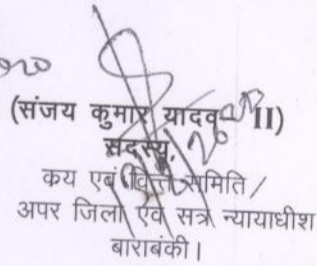 (संजय कुमार यादव-II)
सदस्य,
कय एवं वित्त समिति /
अपर जिला एवं सत्र न्यायाधीश
बाराबंकी।